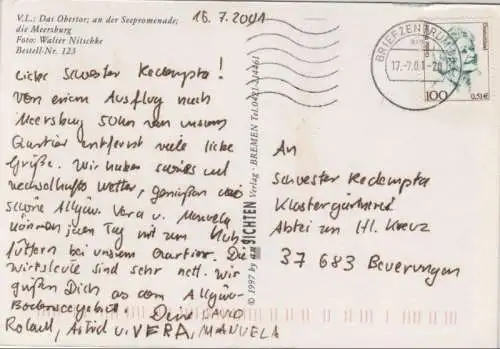 V.L.: Das Obertor; an der Seepromenade;
die Meersburg
Foto: Walter Nitschke
Bestell-Nr. 123
16.7.2001
Liebe Schwester Redempta!
Von einem Ausflug nach
Meersburg 50km von unserem
Quartier entfernt viele liebe
Grüße. Wir haben schönes und
wechselhaftes Wetter, genießen das
schöne Allgäu. Vera u. Manuela
können jeden Tag mit zum Kuh
füttern bei unserem Quartier. Die
Wirtsleute sind sehr nett. Wir
grüßen Dich aus dem Allgäu-
Bodenseegebiet. Deine DAVID
Roland, Astrid u. VERA, MANUELA
© 1997 by anSICHTEN Verlag - BREMEN Tel.0421-
BRIEFZENTRUM
17.-7.01-20
100
0,51€
An
Schwester Redempta
Klostergärtnerei
Abtei zum Hl. Kreuz
37 683 Beverungen